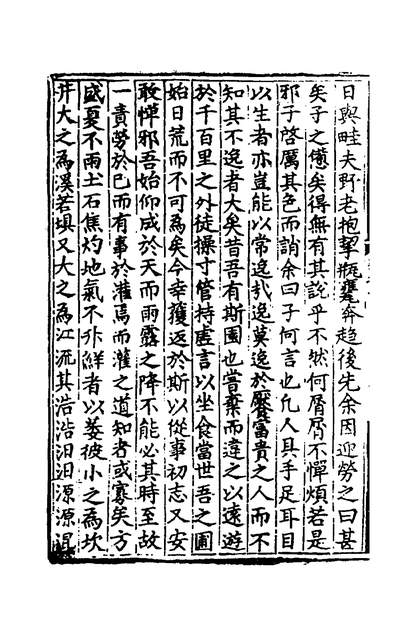 日與畦夫野老抱挈瓶甕奔趋後先余因迎勞之曰甚
矣子之憊矣得無有其說乎不然何屑屑不憚煩若是
邪子啓厲其色而誚余曰子何言也凡人具手足耳目
以生者亦豈能以常逸㢤逸莫逸於饜富貴之人而不
知其不逸者大矣昔吾有斯園也嘗棄而違之以遠遊
於千百里之外徒操寸管持虗言以坐食當世吾之圃
始日荒而不可為矣今幸獲返於斯以從事初志又安
敢憚邪吾始仰成於天而雨露之降不能必其時至故
一責勞於已而有事於灌焉而灌之道知者或寡矣方
盛夏不雨土石焦灼地氣不升鮮者以萎彼小之為坎
井大之為溪若塤又大之為江流其浩浩汩汩源源混